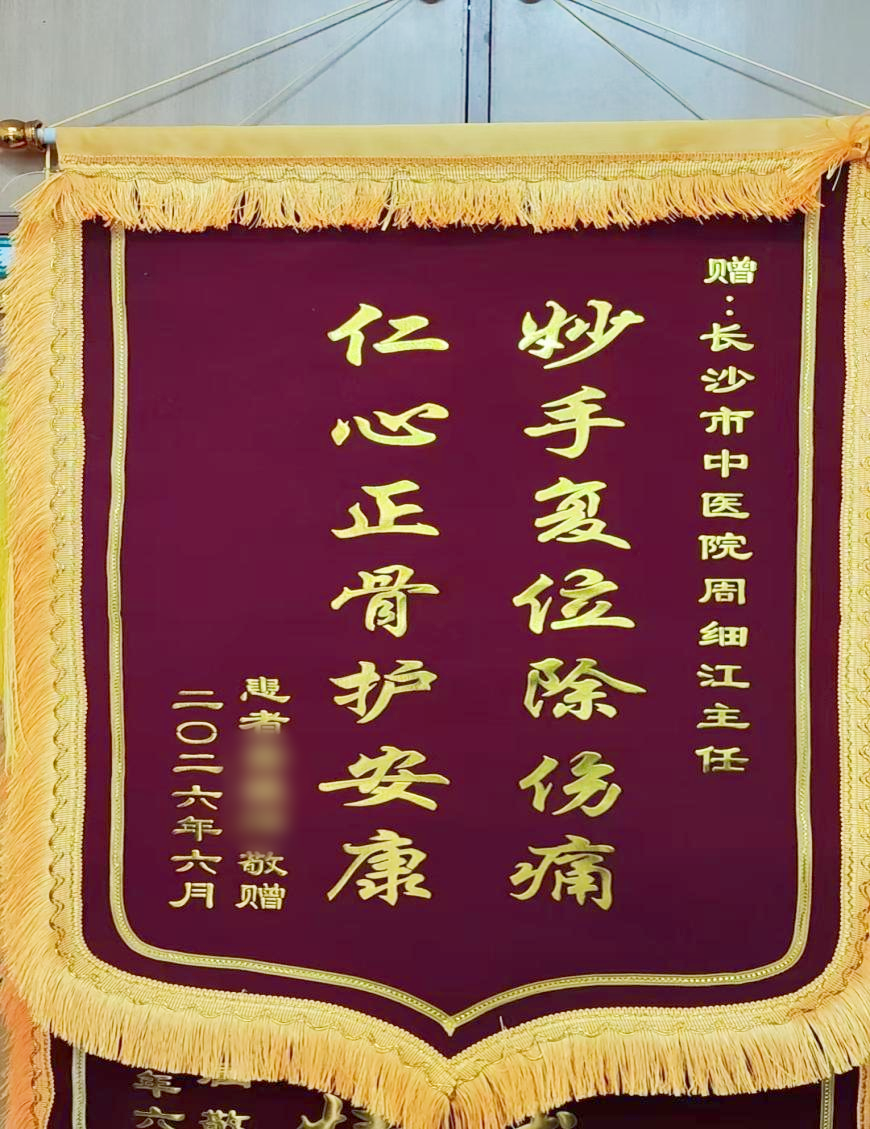 赠：长沙市中医院周细江主任
妙手复位除伤痛
仁心正骨护安康
患者
敬赠
二〇二六年六月
年六
敬